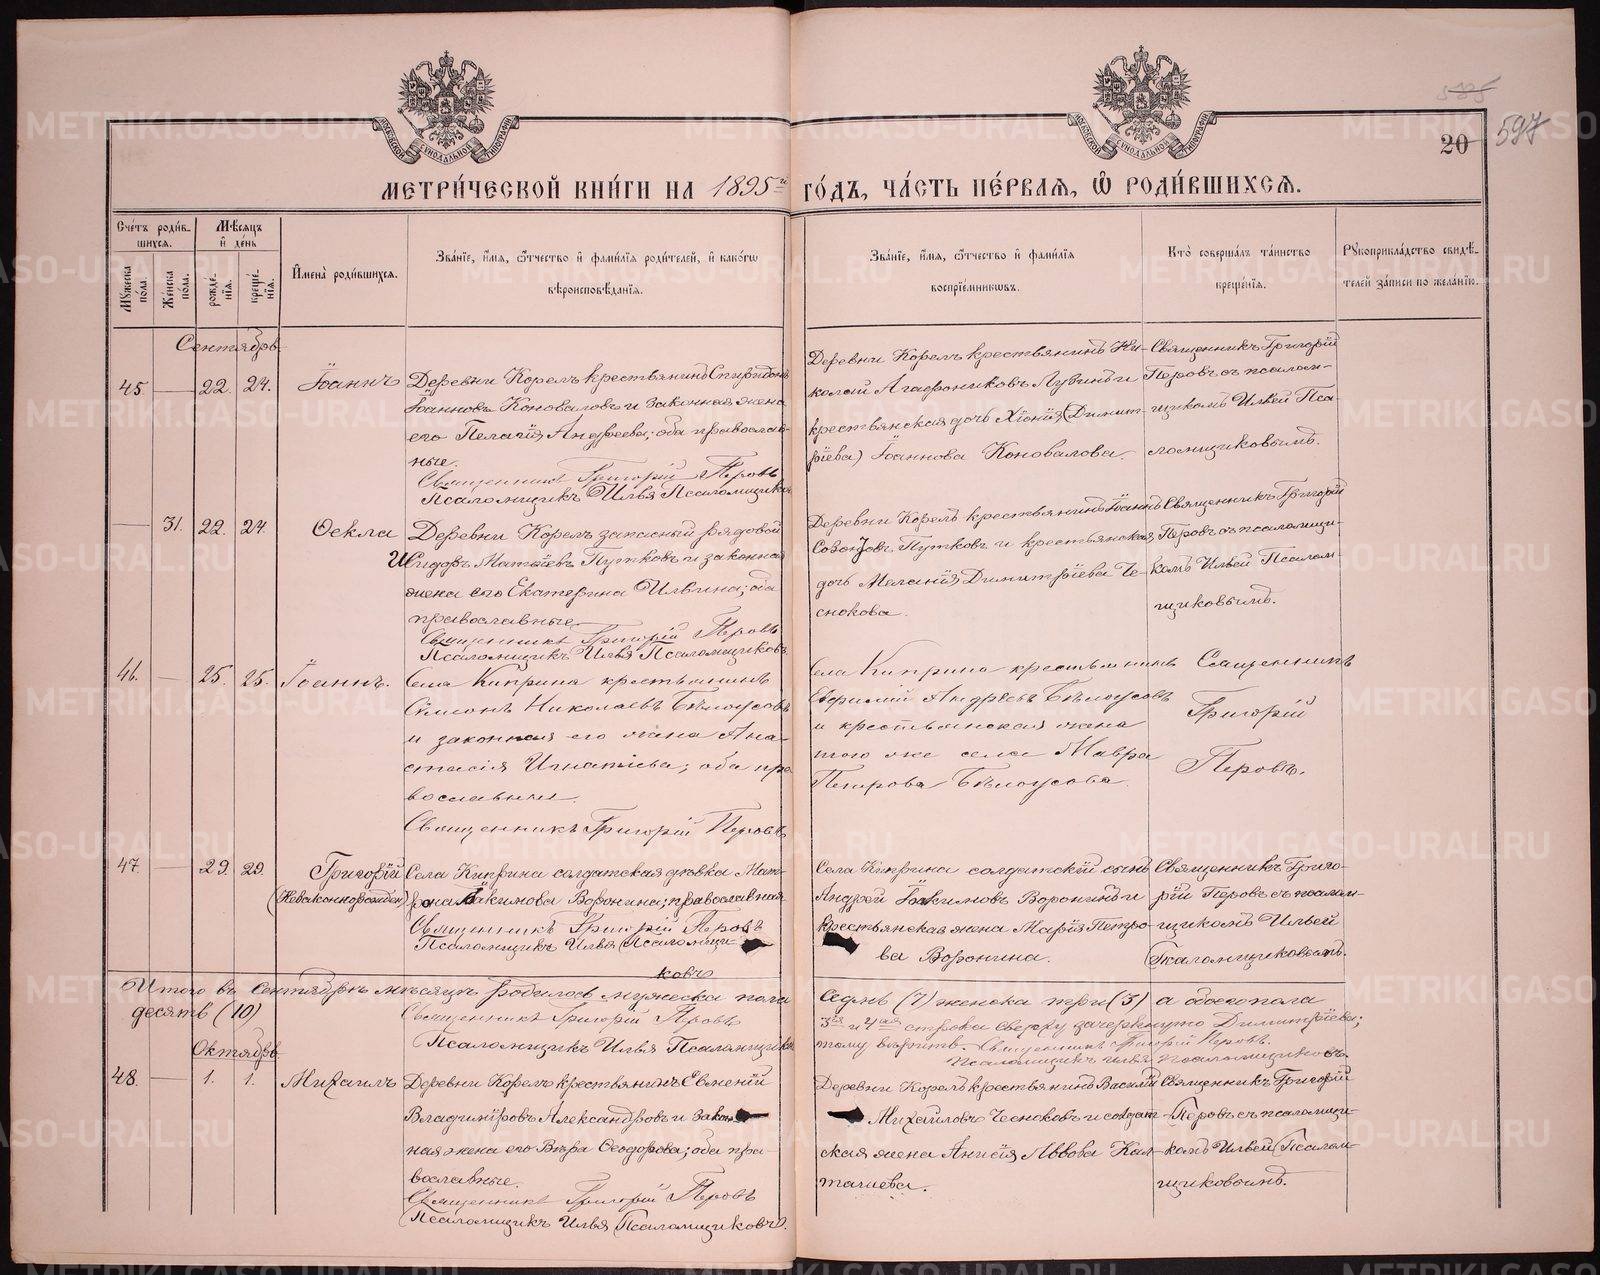 585
20 597
МЕТРИ́ЧЕСКОЙ КНИ́ГИ НА 1895й ГО́ДЪ, ЧА́СТЬ ПЕ́РВАѦ, Ѡ҆ РОДИ́ВШИХСѦ.
Сче́тъ роди́в-
шихсѧ.
Мꙋ́жеска по́ла.
Же́нска по́ла.
Мѣ́сѧцъ
и҆ де́нь
рожде́-
нїѧ.
креще́-
нїѧ.
И҆мена̀ роди́вшихсѧ.
Зва́нїе, и҆́мѧ, ѻ҆́тчество и҆ фами́лїѧ роди́телей, и҆ како́гѡ
вѣроисповѣ́данїѧ.
Зва́нїе, и҆́мѧ, ѻ҆́тчество и҆ фами́лїѧ
воспрїе́мникѡвъ.
Кто̀ соверша́лъ та́инство
креще́нїѧ.
Рꙋкоприкла́дство свидѣ́-
телей за́писи по жела́нїю.
Сентябрь
45. — 22. 24. Іоаннъ
Деревни Корелъ крестьянинъ Спиридонъ
Іоанновъ Коноваловъ и законная жена
его Пелагія Андреева; оба православ-
ные.
Священникъ Григорій Перовъ
Псаломщикъ Илья Псаломщиковъ
Деревни Корелъ крестьянинъ Ни-
колай Агафониковъ Лузинъ и
крестьянская дочь Хіонія (Димит-
ріева) Іоаннова Коновалова.
Священникъ Григорій
Перовъ съ псалом-
щикомъ Ильей Пса-
ломщиковымъ.
— 31. 22. 24. Ѳекла
Деревни Корелъ запасный рядовой
Исидоръ Матѳіевъ Путковъ и законная
жена его Екатерина Ильина; оба
православные.
Священникъ Григорій Перовъ
Псаломщикъ Илья Псаломщиковъ
Деревни Корелъ крестьянинъ Іоаннъ
Созонтовъ Путковъ и крестьянская
дочь Меланія Димитріева Че-
снокова.
Священникъ Григорій
Перовъ съ псаломщи-
комъ Ильей Псалом-
щиковымъ.
46. — 25. 25. Іоаннъ.
Села Киприна крестьянинъ
Сѵмеонъ Николаевъ Бѣлоусовъ
и законная его жена Ана-
стасія Игнатіева; оба пра-
вославныи.
Священникъ Григорій Перовъ
Села Киприна крестьянинъ
Евѳимій Андреевъ Бѣлоусовъ
и крестьянская жена
того же села Мавра
Петрова Бѣлоусова.
Священникъ
Григорій
Перовъ.
47. — 29. 29. Григорій
(Незаконнорожден)
Села Киприна солдатская дѣвка Мат-
рона Іакимова Воронина; православная
Священникъ Григорій Перовъ
Псаломщикъ Илья Псаломщи-
ковъ
Села Киприна солдатскій сынъ
Андрей Іоакимовъ Воронинъ и
крестьянская жена Марія Петро-
ва Воронина.
Священникъ Григо-
рій Перовъ съ псалом-
щикомъ Ильей
Псаломщиковымъ.
Итого въ Сентябрѣ мѣсяцѣ родилось мужеска пола
Седмь (7) женска три (3) а обоего пола
десять (10)
Священникъ Григорій Перовъ
Псаломщикъ Илья Псаломщиковъ
3я и 4ая строка сверху зачеркнуто Димитріева;
тому вѣрить. Священникъ Григорій Перовъ.
Псаломщикъ Илья Псаломщиковъ
Октябрь
48. — 1. 1. Михаилъ
Деревни Корелъ крестьянинъ Евменій
Владиміровъ Александровъ и закон-
ная жена его Вѣра Ѳеодорова; оба пра-
вославные.
Священникъ Григорій Перовъ
Псаломщикъ Илья Псаломщиковъ.
Деревни Корелъ крестьянинъ Василій
Михайловъ Чесноковъ и солдат-
ская жена Анисія Львова Кал-
ташева.
Священникъ Григорій
Перовъ съ псаломщи-
комъ Ильей Псалом-
щиковымъ.
METRIKI.GASO-URAL.RU